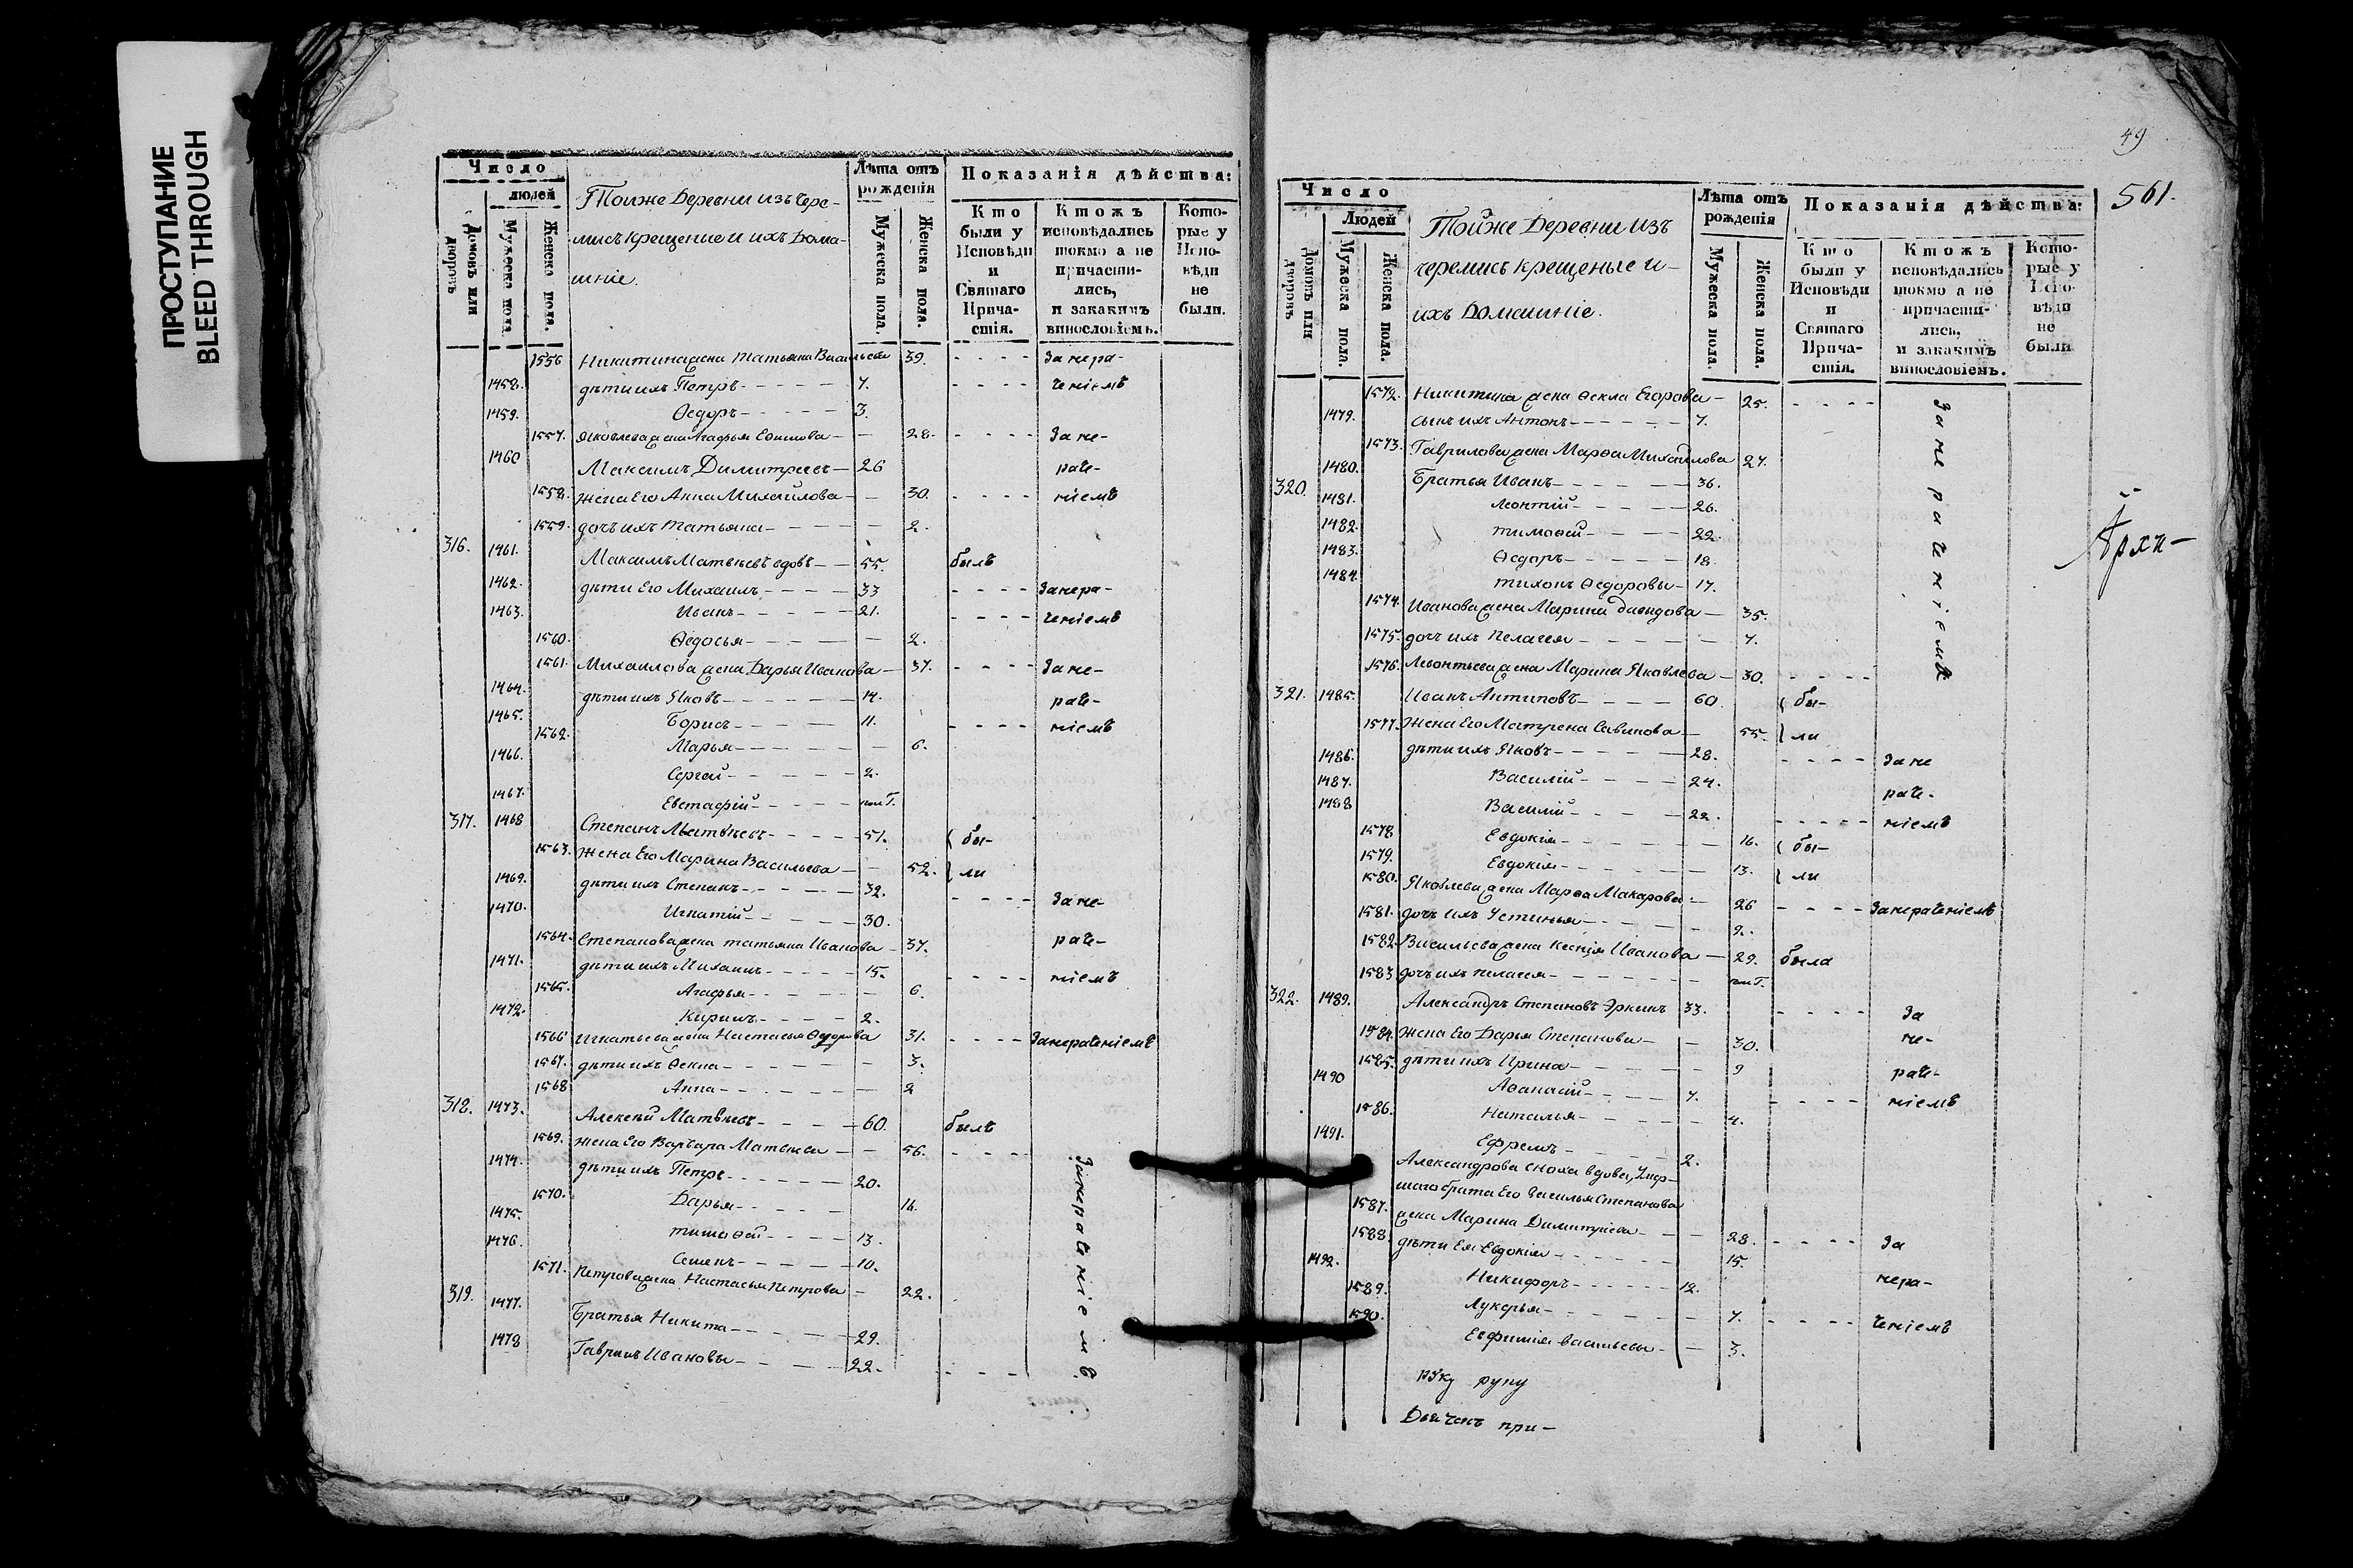 ПРОСТУПАНИЕ
BLEED THROUGH
Число
людей
Домовъ или дворовъ
Мужеска пола.
Женска пола.
Тойже Деревни изъ чере-
мисъ крещеные и ихъ Дома-
шніе.
Лѣта отъ рожденія
Мужеска пола.
Женска пола.
Показанія дѣйства:
Кто были у Исповѣди и Святаго Прича-стія.
Ктожъ исповѣдались токмо а не причасти-лись, и закакимъ винословіемъ.
Кото-рые у Испо-вѣди не были.
1556 Никитина жена Татьяна Васильева 39. Занера-
1458. дѣти ихъ Петръ 7. ченіемъ
1459. Ѳедоръ 3.
1557. Яковлева жена Агафья Ефимова 28. Зане-
1460 Максимъ Димитреевъ 26 раче-
1558. жена Его Анна Михайлова 30. ніемъ
1559. дочь ихъ Татьяна 2.
316. 1461. Максимъ Матвѣевъ вдовъ 55. былъ
1462. дѣти Его Михаилъ 33 Занера-
1463. Иванъ 21. ченіемъ
1560. Ѳедосья 2.
1561. Михаилова жена Дарья Иванова 37. Зане-
1464. дѣти ихъ Яковъ 14. раче-
1465. Борисъ 11. ніемъ
1562. Марья 6.
1466. Сергей 2.
1467. Евстафій пол Г.
317. 1468 Степанъ Матвѣевъ 51. бы-
1563. жена Его Марина Васильева 52. ли
1469. дѣти ихъ Степанъ 32. Зане-
1470. Игнатій 30.
1564. Степанова жена татьяна Иванова 37. раче-
1471. дѣти ихъ Михаилъ 15. ніемъ
1565. Агафья 6.
1472. Кирилъ 2.
1566 Игнатьева жена Настасья Ѳедорова 31. Занераченіемъ
1567. дѣти ихъ Ѳекла 3.
1568 Анна 2
318. 1473. Алексѣй Матвѣевъ 60. былъ
1569. жена Его Варвара Матвѣева 56.
1474. дѣти ихъ Петръ 20.
1570. Дарья 16.
1475. тимоѳей 13.
1476. Семенъ 10.
1571. Петрова жена Настасья Петрова 22.
319. 1477. Братья Никита 29.
1478 Гаврилъ Ивановы 22.
Занераченіемъ
49
561.
Число
Людей
Домовъ или дворовъ
Мужеска пола.
Женска пола.
Тойже Деревни изъ
черемисъ крещеные и
ихъ Домашніе.
Лѣта отъ рожденія
Мужеска пола.
Женска пола.
Показанія дѣйства:
Кто были у Исповѣди и Святаго Прича-стія.
Ктожъ исповѣдались токмо а не причасти-лись, и закакимъ винословіемъ.
Кото-рые у Испо-вѣди не были
1572. Никитина жена Ѳекла Егорова 25.
1479. сынъ ихъ Антонъ 7.
1573. Гаврилова жена Марѳа Михайлова 27.
320. 1480. Братья Иванъ 36.
1481. Леонтій 26.
1482. тимоѳей 22.
1483. Ѳедоръ 18.
1484. тихонъ Ѳедоровы 17.
1574. Иванова жена Марина Давидова 35.
1575. дочь ихъ Пелагея 7.
1576. Леонтьева жена Марина Яковлева 30.
Занераченіемъ
321. 1485. Иванъ Антиповъ 60. бы-
1577. Жена Его Матрена Савинова 55. ли
1486. дѣти ихъ Яковъ 28. Зане
1487. Василій 24. раче-
1488 Василій 22. ніемъ
1578 Евдокія 16. бы-
1579. Евдокія 13. ли
1580. Яковлева жена Марѳа Макарова 26 Занераченіемъ
1581. дочь ихъ Устинья 2.
1582. Васильева жена Ксенія Иванова 29. была
1583 дочь ихъ пелагея пол Г.
322. 1489. Александръ Степановъ Эркинъ 33. За
1584. жена Его Дарья Степанова 30. не-
1585. дѣти ихъ Ирина 9 раче-
1490 Аѳанасій 7. ніемъ
1586. Наталья 4.
1491. Ефремъ 2.
Александрова сноха вдова, Умер-
шаго брата Его Василья Степанова
1587. жена Марина Димитріева 28. За
1588. дѣти Ея Евдокія 15.
1492. Никифоръ 12. нера-
1589. Лукерья 7. ченіемъ
1590. Евфимія Васильевы 3.
руку
Дьячекъ при-
Архи-